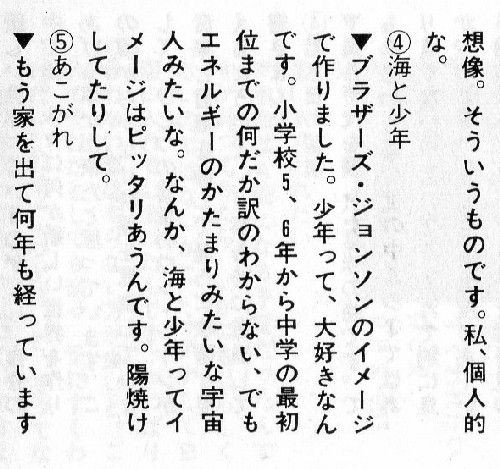 想像。そういうものです。私、個人的
な。
④海と少年
▼ブラザーズ・ジョンソンのイメージ
で作りました。少年って、大好きなん
です。小学校5、6年から中学の最初
位までの何だか訳のわからない、でも
エネルギーのかたまりみたいな宇宙
人みたいな。なんか、海と少年ってイ
メージはピッタリあうんです。陽焼け
してたりして。
⑤あこがれ
▼もう家を出て何年も経っています